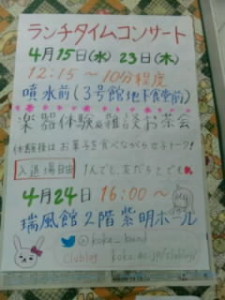 ランチタイムコンサート
4月15日(水) 23日(木)
12:15〜10分程度
噴水前(3号館地下食堂前)
楽器体験&雑談お茶会
体験後はお菓子を食べながらゼミトーク!
入退場自由 1人でも、友だちとでも
4月24日 16:00〜
瑞風館2階紫明ホール
@koka_band